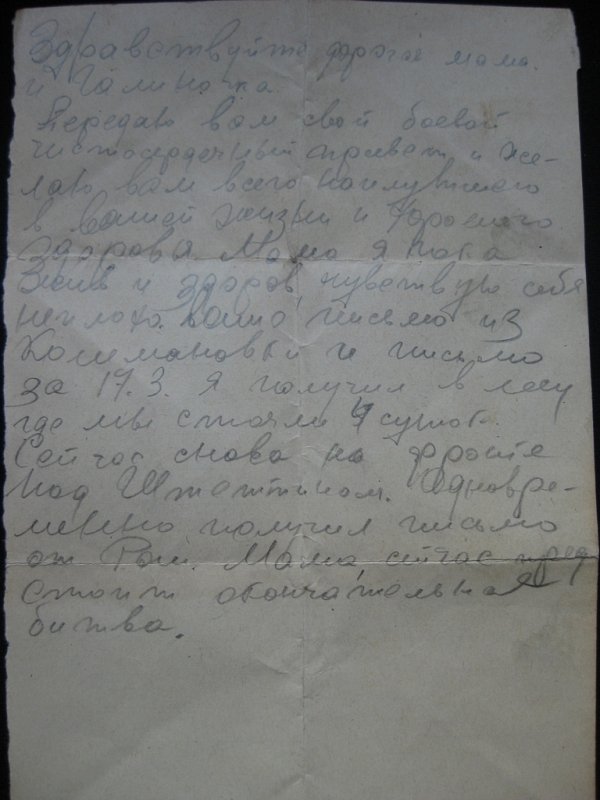 Здравствуйте дорогая мама
и Галиночка.
Передаю вам свой боевой
чистосердечный привет и же-
лаю вам всего наилучшего
в вашей жизни и хорошего
здоровья Мама я пока
жив и здоров, чувствую себя
неплохо. Ваше письмо из
письмо
за 17.3. Я получил в лесу
где мы стояли 4 суток.
Сейчас снова на фронте
под Штеттином. Одновре-
менно получил письмо
от Раи. Мама, сейчас пред
стоит окончательная
битва.